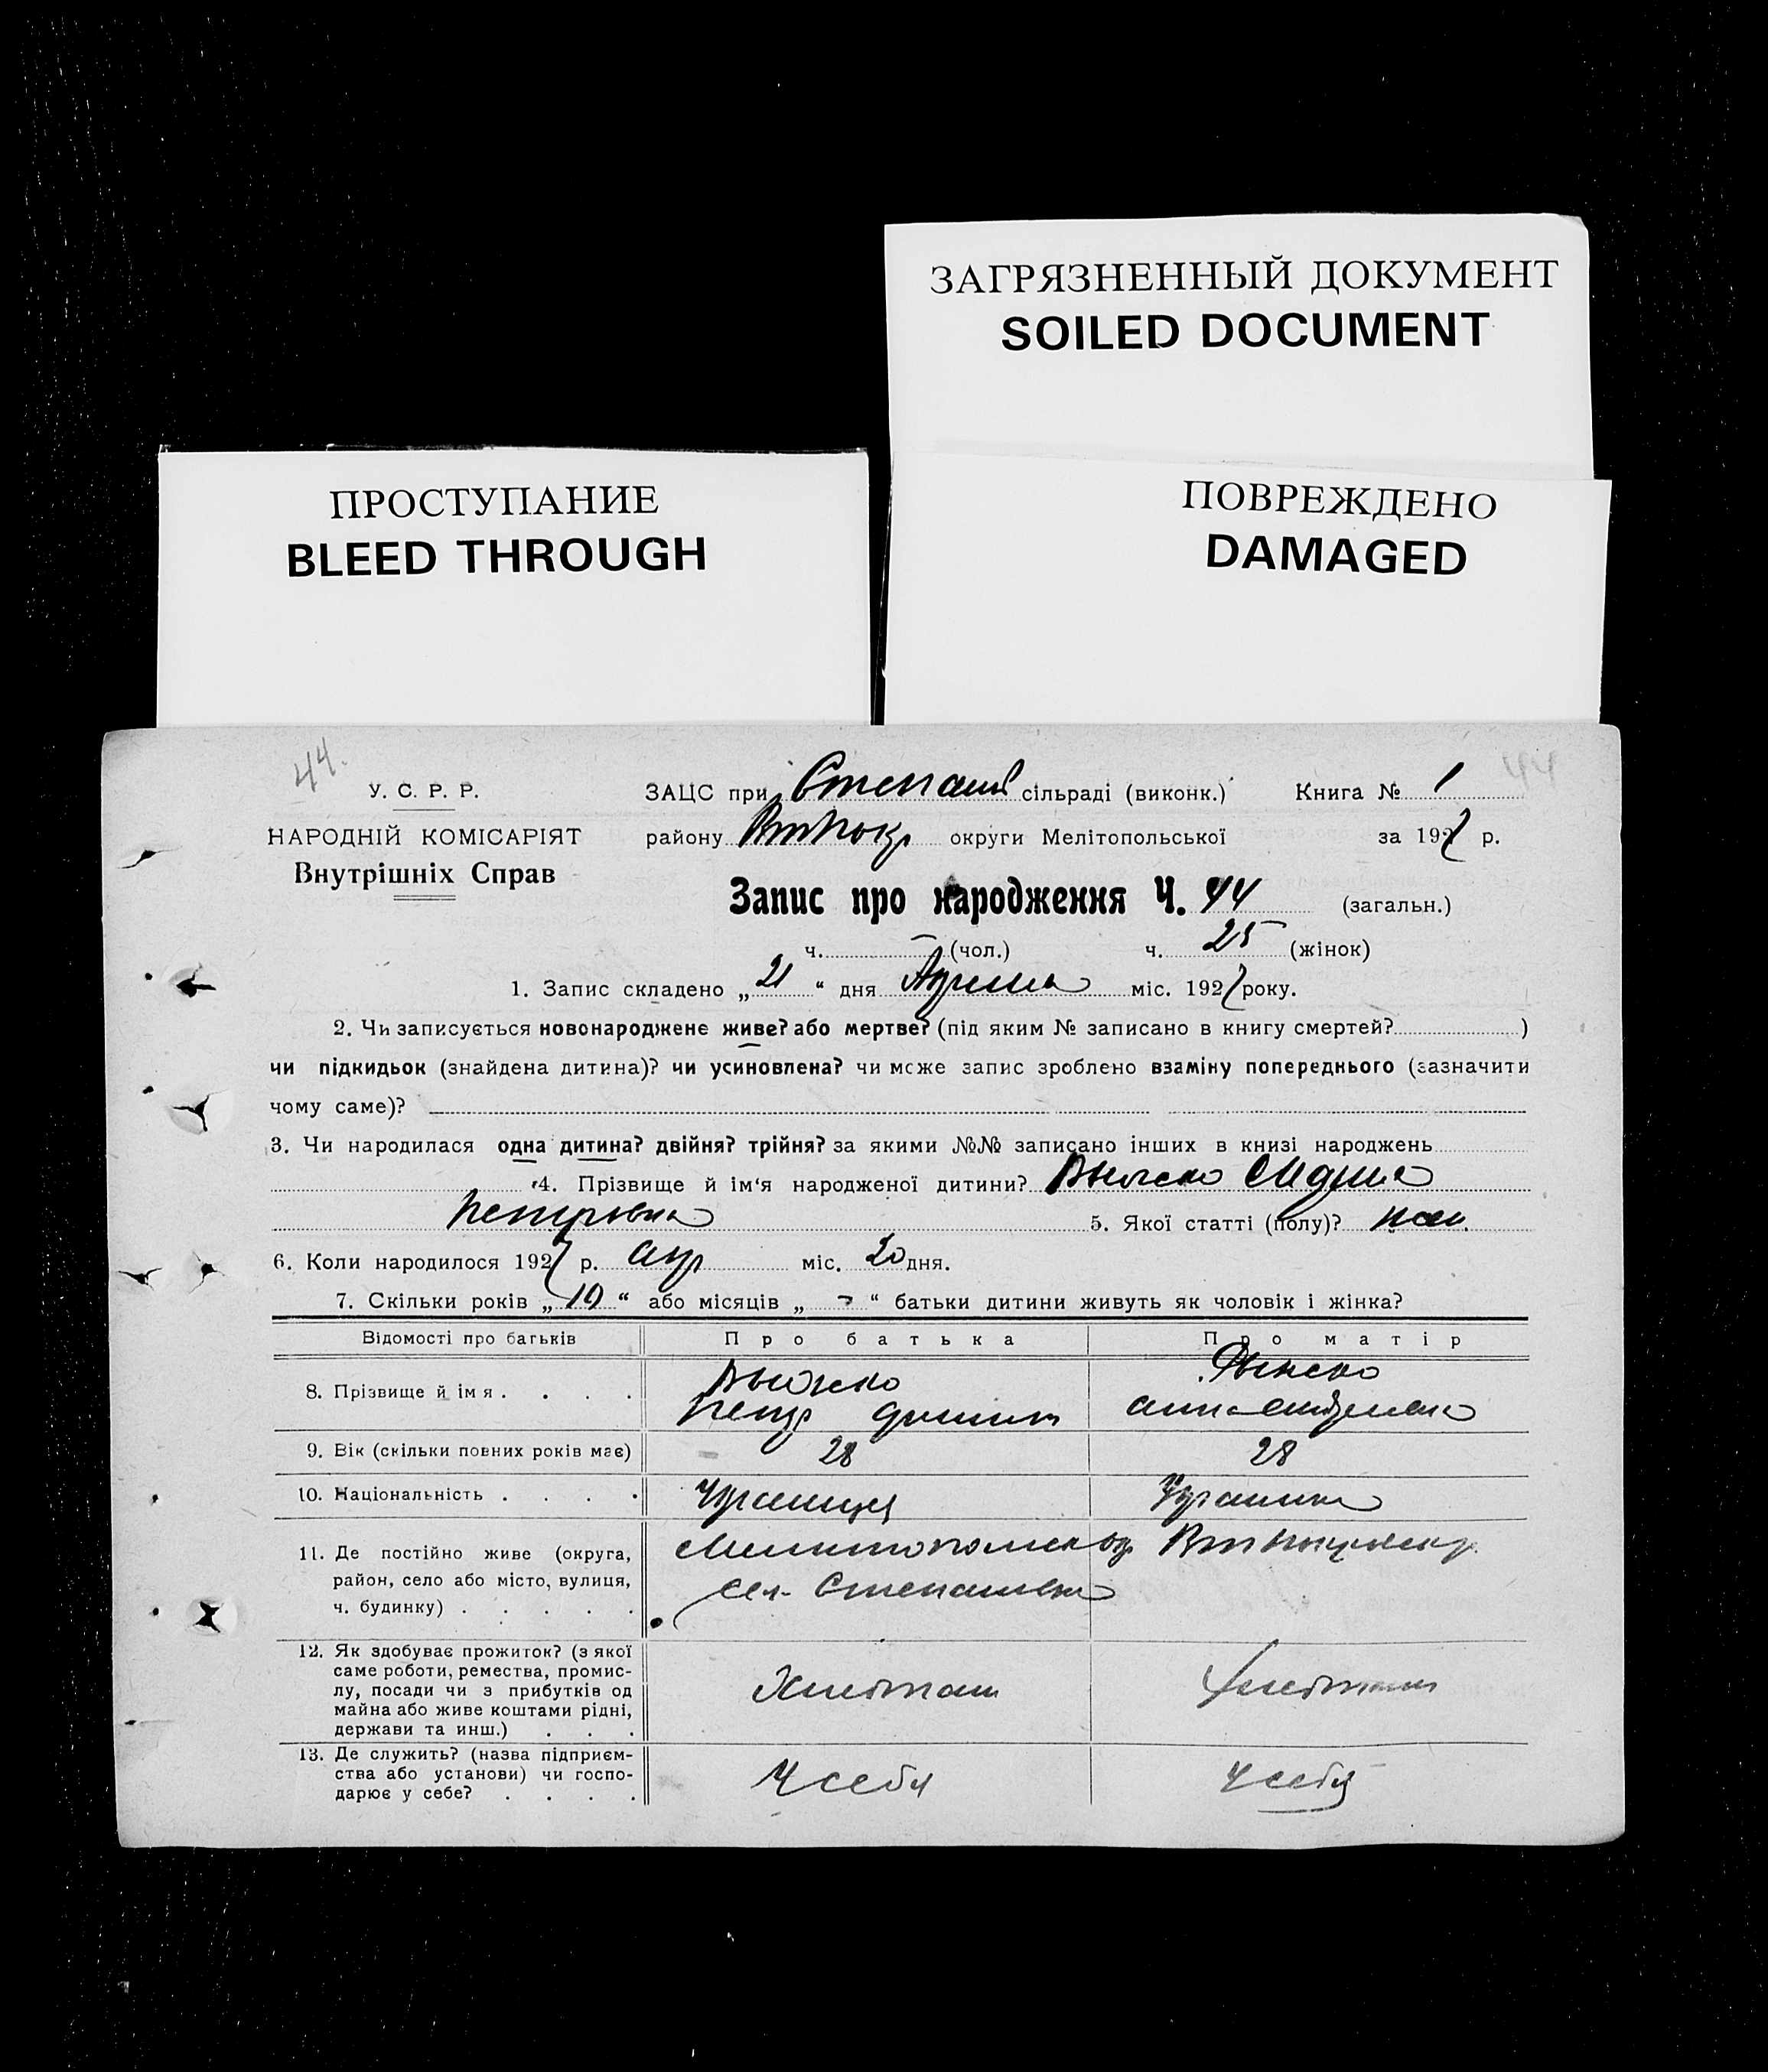 ЗАГРЯЗНЕННЫЙ ДОКУМЕНТ
SOILED DOCUMENT
ПРОСТУПАНИЕ
BLEED THROUGH
ПОВРЕЖДЕНО
DAMAGED
44. 44
У. С. Р. Р.
НАРОДНІЙ КОМІСАРІЯТ
Внутрішніх Справ
ЗАЦС при Степанів сільраді (виконк.) Книга № 1
району округи Мелітопольської за 1927 р.
Запис про народження Ч. 44 (загальн.)
ч. — (чол.) ч. 25 (жінок)
1. Запис складено „21“ дня Апреля міс. 1927 року.
2. Чи записується новонароджене живе? або мертве? (під яким № записано в книгу смертей? )
чи підкидьок (знайдена дитина)? чи усиновлена? чи може запис зроблено взаміну попереднього (зазначити
чому саме)?
3. Чи народилася одна дитина? двійня? трійня? за якими №№ записано інших в книзі народжень
4. Прізвище й ім‘я народженої дитини?
Петровна 5. Якої статті (полу)? жен.
6. Коли народилося 1927 р. апр міс. 20 дня.
7. Скільки років „10“ або місяців „-“ батьки дитини живуть як чоловік і жінка?
Відомості про батьків Про батька Про матір
8. Прізвище й імя . . . .
Петр Анна
9. Вік (скільки повних років має) 28 28
10. Національність . . . . Украинец Украинка
11. Де постійно живе (округа,
район, село або місто, вулиця,
ч. будинку) . . . . .
Мелитопольск окр
сел. Степановка
12. Як здобуває прожиток? (з якої
саме роботи, ремества, промис-
лу, посади чи з прибутків од
майна або живе коштами рідні,
держави та инш.) . . .
Хлебопаш Хлебопаш
13. Де служить? (назва підприєм-
ства або установи) чи госпо-
дарює у себе? . . . .
У себя У себя